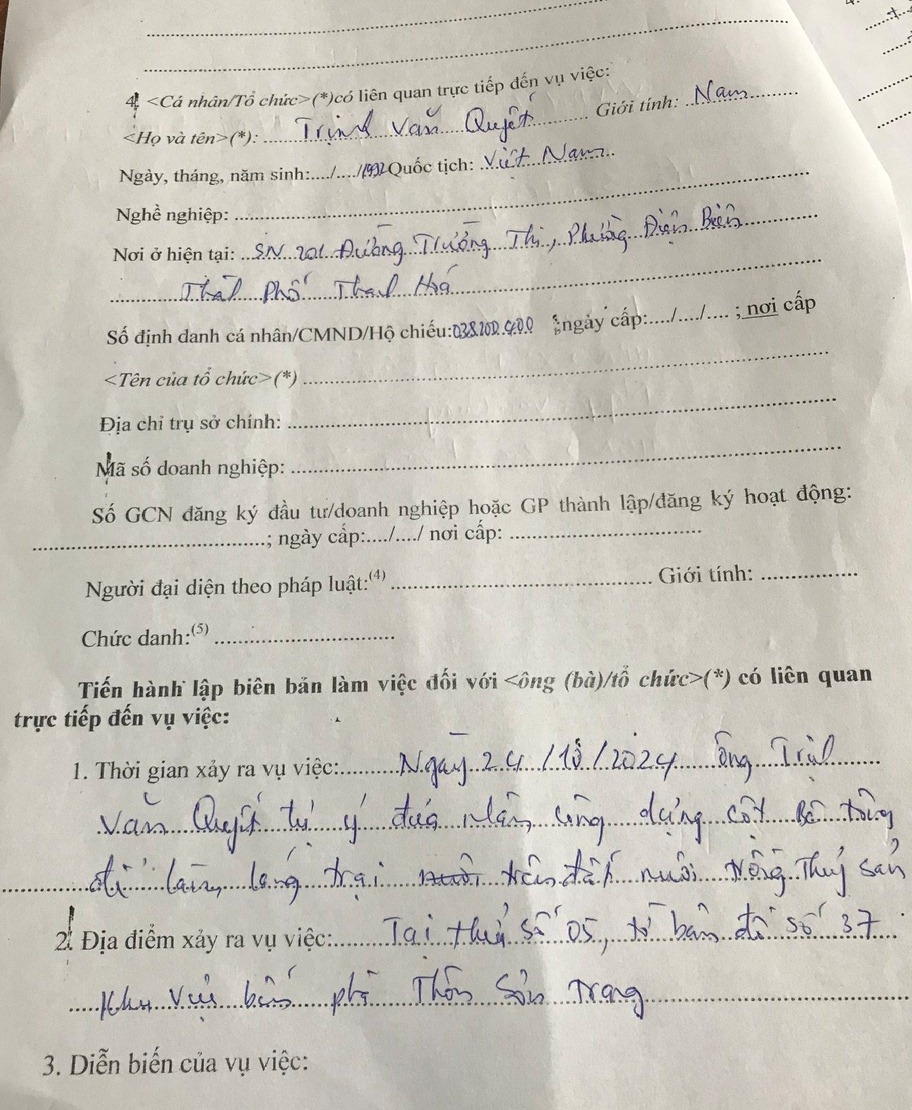 4. <Cá nhân/Tổ chức>(*)có liên quan trực tiếp đến vụ việc:
<Họ và tên>(*): Trịnh Văn Quyết Giới tính: Nam
Ngày, tháng, năm sinh:..../..../1992 Quốc tịch: Việt Nam
Nghề nghiệp:
Nơi ở hiện tại: SN 201 Đường Trường Thi, Phường Điện Biên
Thành Phố Thanh Hoá
Số định danh cá nhân/CMND/Hộ chiếu: ngày cấp:..../..../.... ; nơi cấp
<Tên của tổ chức>(*)
Địa chỉ trụ sở chính:
Mã số doanh nghiệp:
Số GCN đăng ký đầu tư/doanh nghiệp hoặc GP thành lập/đăng ký hoạt động:
; ngày cấp:..../..../ nơi cấp:
Người đại diện theo pháp luật:(4) Giới tính:
Chức danh:(5)
Tiến hành lập biên bản làm việc đối với <ông (bà)/tổ chức>(*) có liên quan
trực tiếp đến vụ việc:
1. Thời gian xảy ra vụ việc: Ngày 24/10/2024 Ông Trịnh
Văn Quyết tự ý đưa nhân công dựng cột Bê tông
để làm trại trên đất nuôi trồng Thuỷ sản
2. Địa điểm xảy ra vụ việc: Tại thửa số 05, tờ bản đồ số 37
Khu vực thôn Sơn Trang
3. Diễn biến của vụ việc: